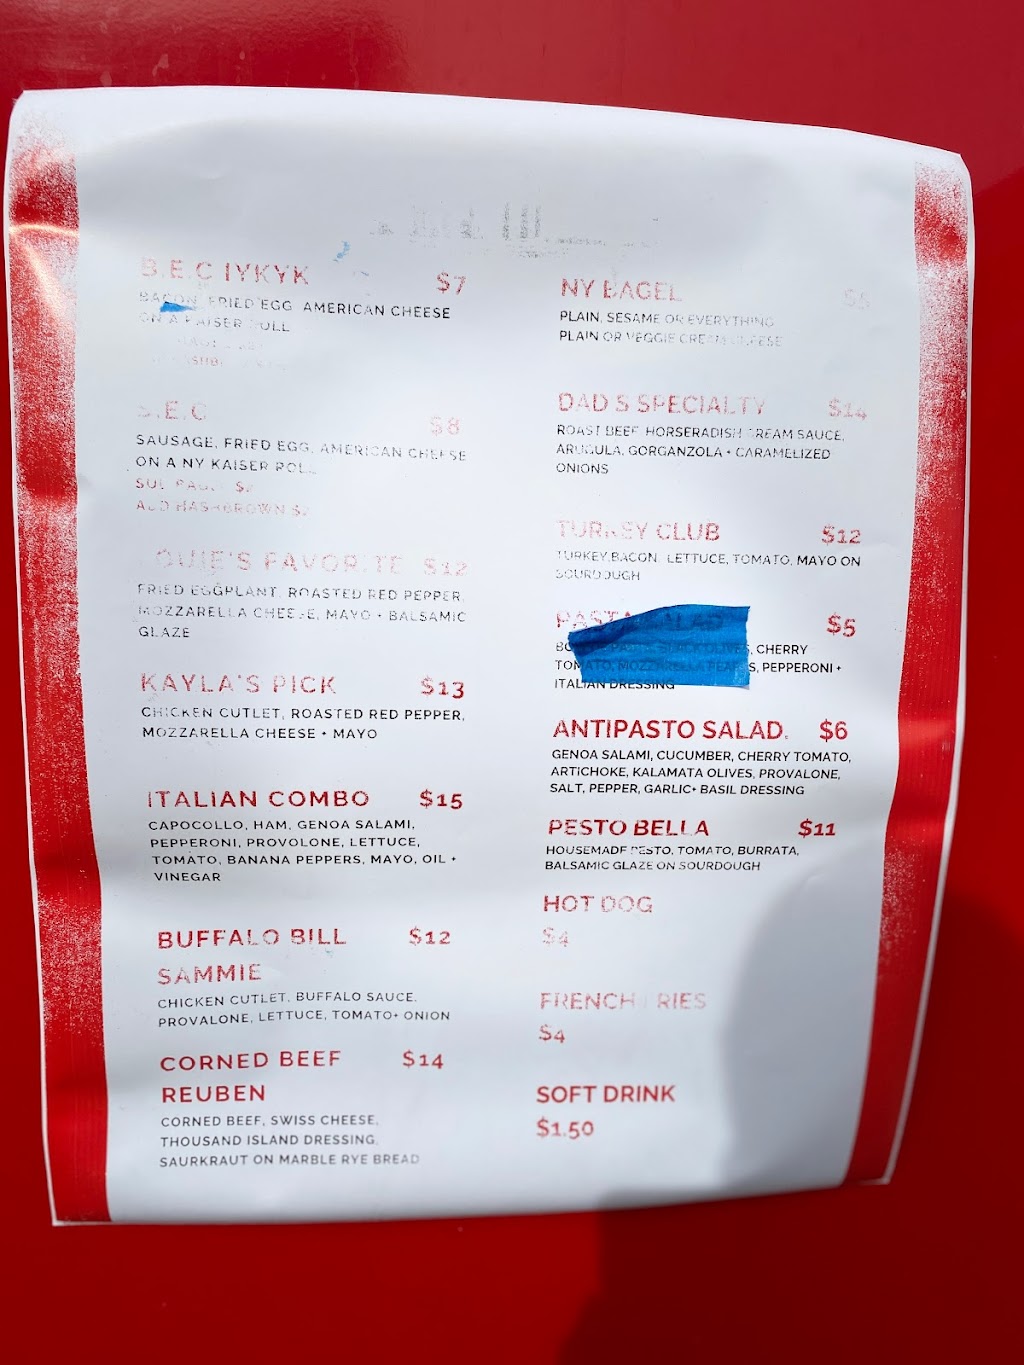 B.E.C IYKYK $7
BACON, FRIED EGG, AMERICAN CHEESE
ON A KAISER ROLL
S.E.C $8
SAUSAGE, FRIED EGG, AMERICAN CHEESE
ON A NY KAISER ROLL
ADD HASHBROWN $2
FAVORITE $12
FRIED EGGPLANT, ROASTED RED PEPPER,
MOZZARELLA CHEESE, MAYO + BALSAMIC
GLAZE
KAYLA'S PICK $13
CHICKEN CUTLET, ROASTED RED PEPPER,
MOZZARELLA CHEESE + MAYO
ITALIAN COMBO $15
CAPOCOLLO, HAM, GENOA SALAMI,
PEPPERONI, PROVOLONE, LETTUCE,
TOMATO, BANANA PEPPERS, MAYO, OIL +
VINEGAR
BUFFALO BILL $12
SAMMIE
CHICKEN CUTLET, BUFFALO SAUCE,
PROVALONE, LETTUCE, TOMATO+ ONION
CORNED BEEF $14
REUBEN
CORNED BEEF, SWISS CHEESE,
THOUSAND ISLAND DRESSING,
SAURKRAUT ON MARBLE RYE BREAD
NY BAGEL
PLAIN, SESAME OR EVERYTHING
PLAIN OR VEGGIE CREAM CHEESE
DAD'S SPECIALTY $14
ROAST BEEF, HORSERADISH CREAM SAUCE,
ARUGULA, GORGANZOLA + CARAMELIZED
ONIONS
TURKEY CLUB $12
TURKEY, BACON, LETTUCE, TOMATO, MAYO ON
SOURDOUGH
PASTA SALAD $5
PASTA, BLACK OLIVES, CHERRY
TOMATO, MOZZARELLA PEARLS, PEPPERONI +
ITALIAN DRESSING
ANTIPASTO SALAD. $6
GENOA SALAMI, CUCUMBER, CHERRY TOMATO,
ARTICHOKE, KALAMATA OLIVES, PROVALONE,
SALT, PEPPER, GARLIC+ BASIL DRESSING
PESTO BELLA $11
HOUSEMADE PESTO, TOMATO, BURRATA,
BALSAMIC GLAZE ON SOURDOUGH
HOT DOG
$4
FRENCH FRIES
$4
SOFT DRINK
$1.50